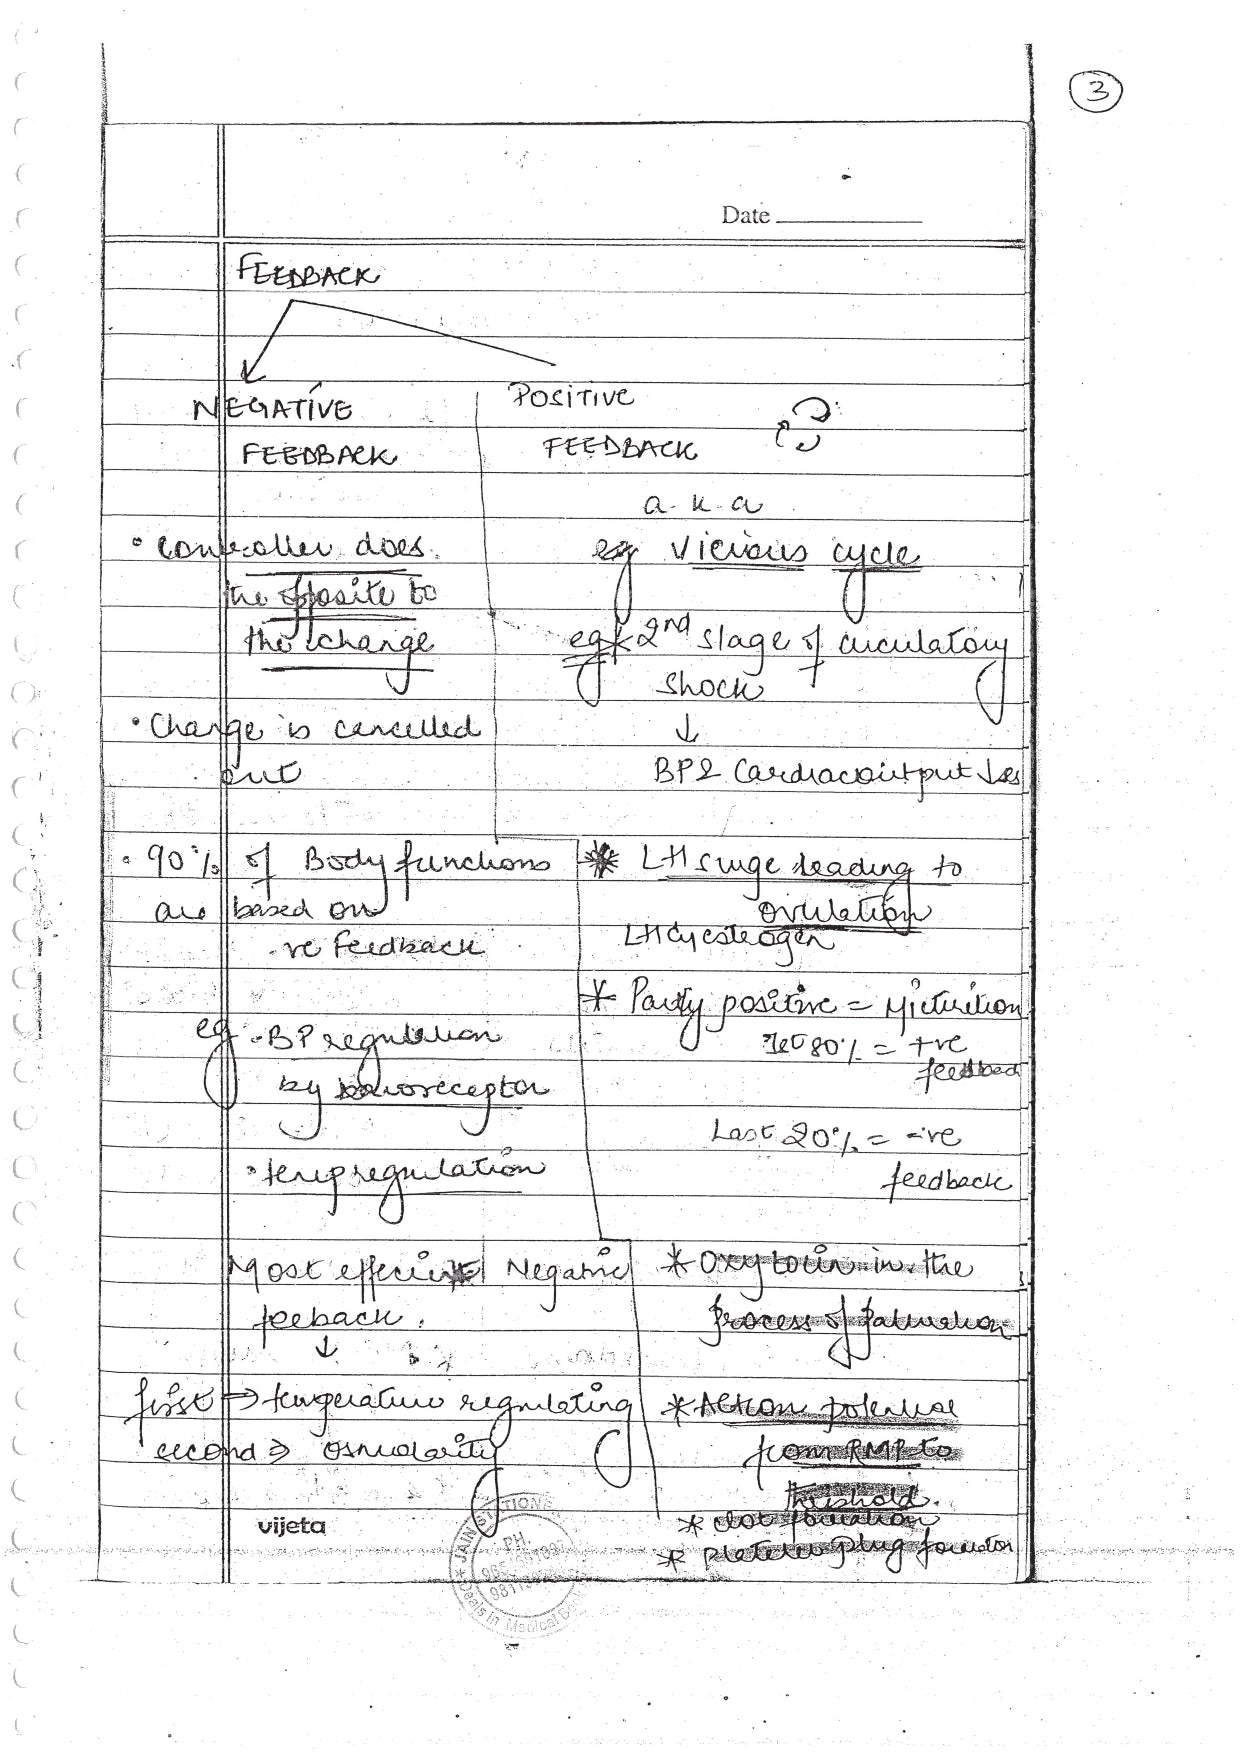 3
Date
FEEDBACK
NEGATIVE
FEEDBACK
• Controller does
the opposite to
the change
• Change is cancelled
out
• 90% of Body functions
are based on
-ve feedback
eg • BP regulation
by baroreceptor
• temp regulation
Most effecient Negative
feeback.
↓
first ⇒ temperature regulating
second ⇒ Osmolarity
POSITIVE
FEEDBACK
a.k.a
eg Vicious cycle
eg * 2nd stage of circulatory
shock
↓
BP & Cardiac output ↓es
* LH surge leading to
ovulation
LH estrogen
* Partly positive = Micturition
1st 80% = +ve
feedback
Last 20% = -ve
feedback
* Oxytocin in the
process of
* Action potential
from RMP to
threshold.
* clot formation
* Platelet plug formation
vijeta
JAIN
PH.
Deals in Medical